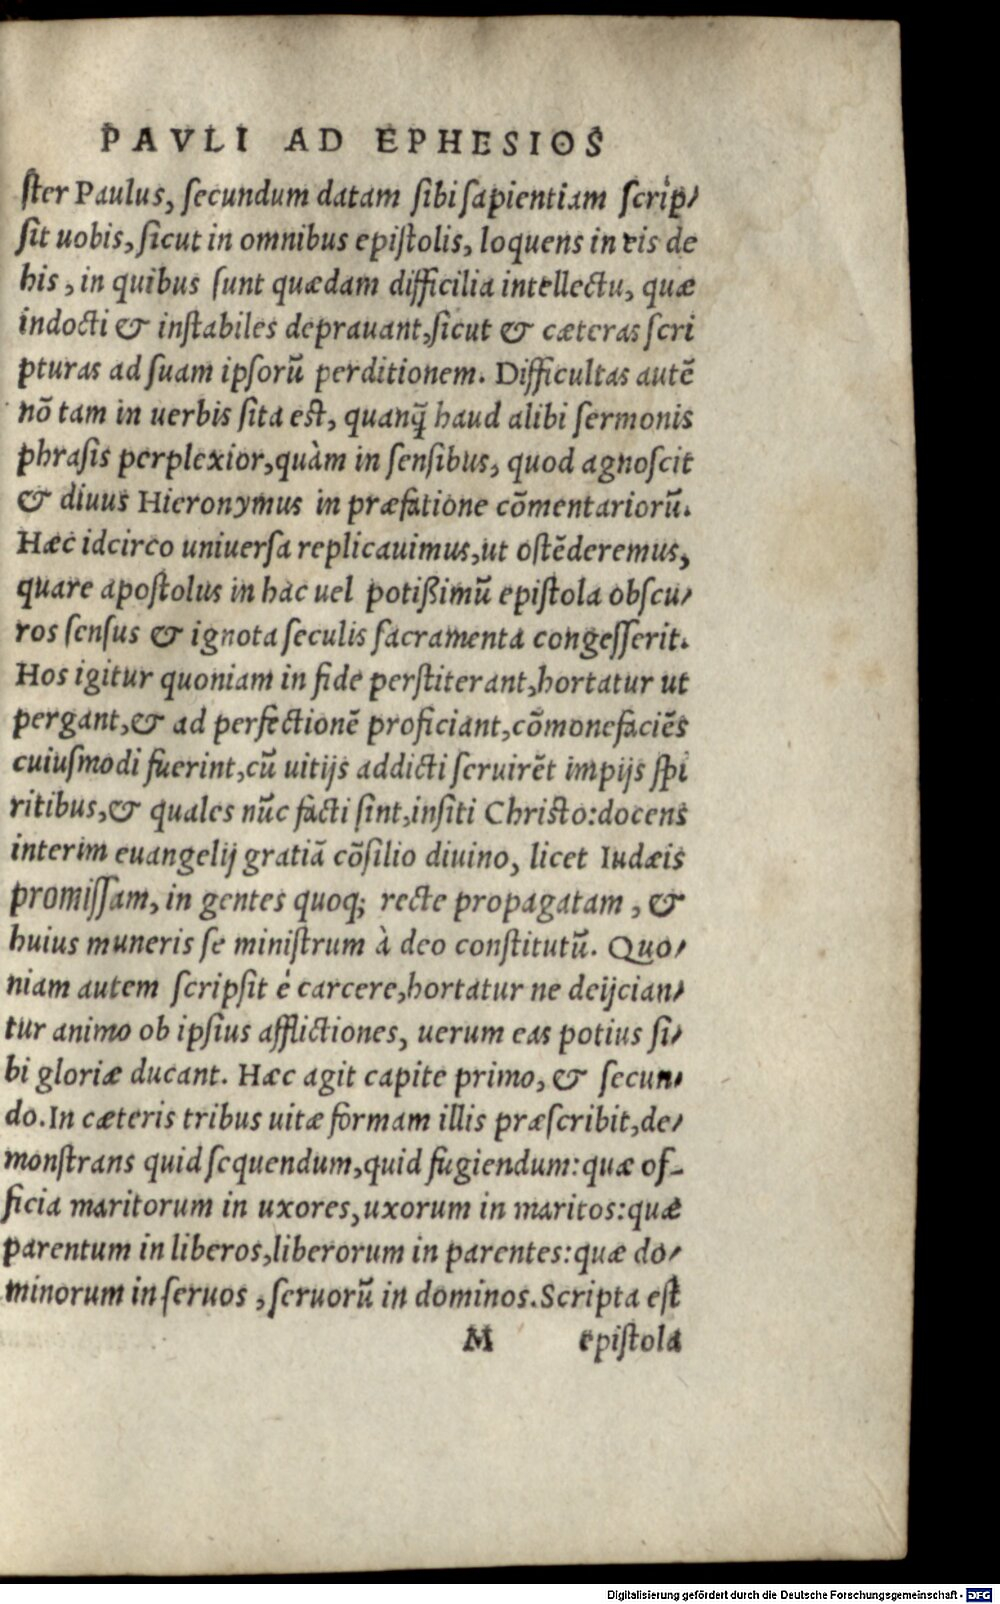 PAVLI AD EPHESIOS
ſter Paulus, ſecundum datam ſibi ſapientiam ſcrip/
ſit uobis, ſicut in omnibus epiſtolis, loquens in eis de
his, in quibus ſunt quædam difficilia intellectu, quæ
indocti & inſtabiles deprauant, ſicut & cæteras ſcri
pturas ad ſuam ipſorū perditionem. Difficultas autē
nō tam in uerbis ſita eſt, quanq̃ haud alibi ſermonis
phraſis perplexior, quàm in ſenſibus, quod agnoſcit
& diuus Hieronymus in præfatione cōmentariorū.
Hæc idcirco uniuerſa replicauimus, ut oſtēderemus,
quare apoſtolus in hac uel potißimū epiſtola obſcu/
ros ſenſus & ignota ſeculis ſacramenta congeſſerit.
Hos igitur quoniam in fide perſtiterant, hortatur ut
pergant, & ad perfectionē proficiant, cōmonefaciēs
cuiuſmodi fuerint, cū uitijs addicti ſeruirēt impijs ſpi
ritibus, & quales nūc facti ſint, inſiti Chriſto: docens
interim euangelij gratiā cōſilio diuino, licet Iudæis
promiſſam, in gentes quoq; recte propagatam, &
huius muneris ſe miniſtrum à deo conſtitutū. Quo/
niam autem ſcripſit è carcere, hortatur ne deijcian/
tur animo ob ipſius afflictiones, uerum eas potius ſi/
bi gloriæ ducant. Hæc agit capite primo, & ſecun/
do. In cæteris tribus uitæ formam illis præſcribit, de/
monſtrans quid ſequendum, quid fugiendum: quæ of-
ficia maritorum in uxores, uxorum in maritos: quæ
parentum in liberos, liberorum in parentes: quæ do/
minorum in ſeruos, ſeruorū in dominos. Scripta eſt
M epiſtola
Digitalisierung gefördert durch die Deutsche Forschungsgemeinschaft - DFG